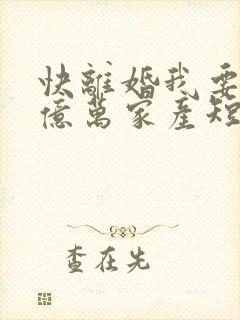 快離婚我要
億萬家產短
查在先